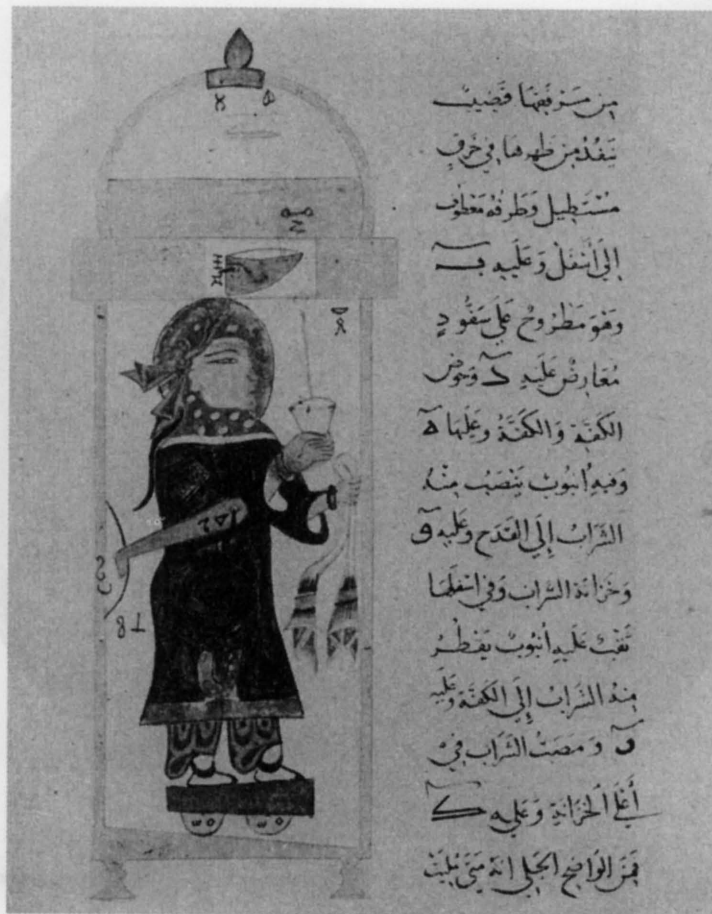 من مرفقها قضيب
ينفذ من ظهرها في خرق
مستطيل وطرفه معطوف
إلى أسفل وعليه
وهو مطروح على سفود
معارض عليه وحوض
الكفة والكفة وعليها ه
وفيه أنبوب ينصب منه
الشراب إلى القدح وعليه و
وخزانة الشراب وفي اسفلها
ثقب عليه أنبوب يقطر
منه الشراب إلى الكفة وعليه
ومصب الشراب في
أعلى الخزانة وعليه ك
فمن الواضح الجلي انه متى مليت